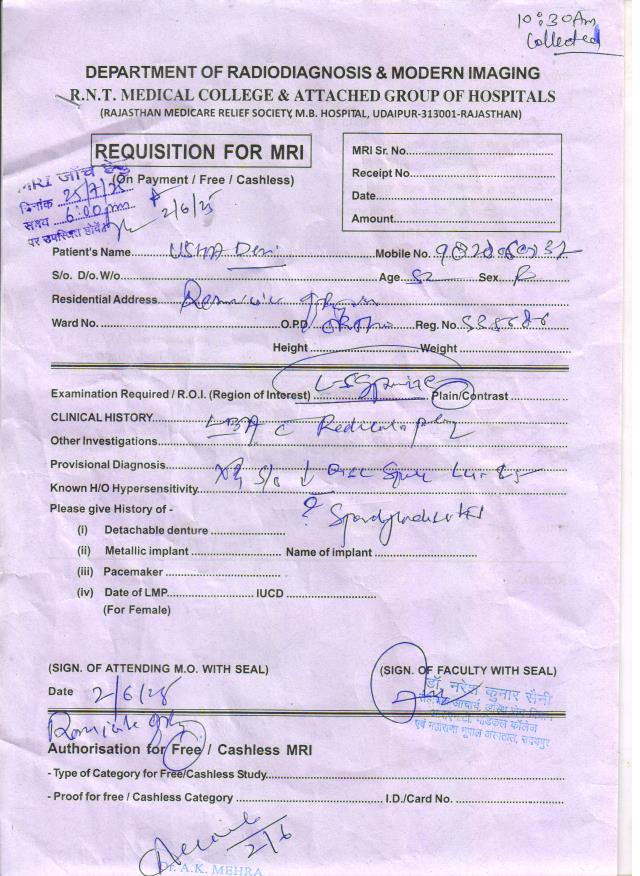 10:30Am
Collected
DEPARTMENT OF RADIODIAGNOSIS & MODERN IMAGING
R.N.T. MEDICAL COLLEGE & ATTACHED GROUP OF HOSPITALS
(RAJASTHAN MEDICARE RELIEF SOCIETY, M.B. HOSPITAL, UDAIPUR-313001-RAJASTHAN)
REQUISITION FOR MRI
(On Payment / Free / Cashless)
MRI जाँच हेतु
दिनांक 25/7/25
समय 6:00pm
पर उपस्थित होवें
2/6/25
MRI Sr. No.
Receipt No.
Date
Amount
Patient's Name USHA Devi Mobile No.
S/o. D/o. W/o Age 52 Sex F
Residential Address
Ward No. O.P.D. Ortho Reg. No.
Height Weight
Examination Required / R.O.I. (Region of Interest) L-S Spine Plain/Contrast
CLINICAL HISTORY LBA c Radiculopathy
Other Investigations
Provisional Diagnosis X-Ray S/o ↓ Disc Space
Known H/O Hypersensitivity
Please give History of -
(i) Detachable denture
(ii) Metallic implant Name of implant
(iii) Pacemaker
(iv) Date of LMP IUCD
(For Female)
(SIGN. OF ATTENDING M.O. WITH SEAL) (SIGN. OF FACULTY WITH SEAL)
डॉ. नरेश कुमार सैनी
Date 2/6/25
एवं महाराणा भूपाल अस्पताल, उदयपुर
Authorisation for Free / Cashless MRI
- Type of Category for Free/Cashless Study
- Proof for free / Cashless Category I.D./Card No.
2/6
Dr. A.K. MEHRA